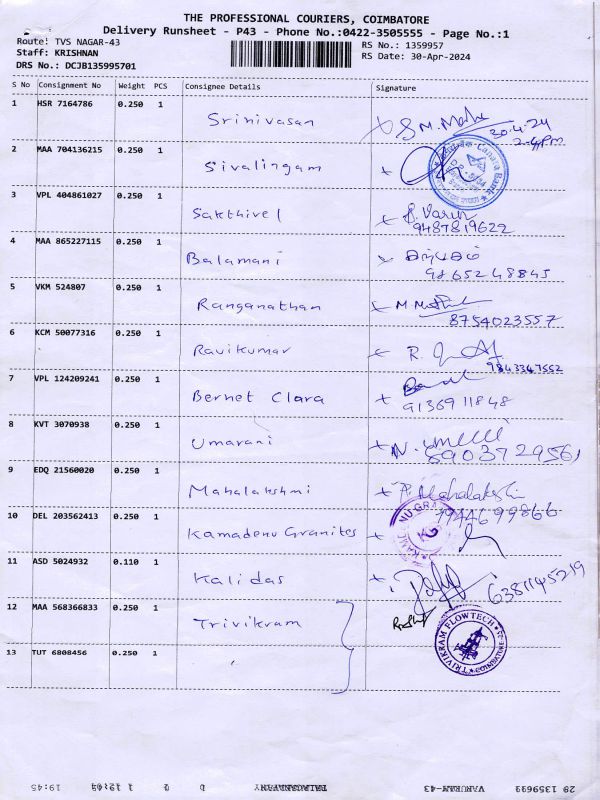 THE PROFESSIONAL COURIERS, COIMBATORE
Delivery Runsheet - P43 - Phone No.:0422-3505555 - Page No.:1
Route: TVS NAGAR-43
RS No.: 1359957
Staff: KRISHNAN
RS Date: 30-Apr-2024
DRS No.: DCJB135995701
S No Consignment No Weight PCS Consignee Details Signature
1 HSR 7164786 0.250 1 Srinivasan
30.4.24
2 MAA 704136215 0.250 1 Sivalingam
Canara Bank
3 VPL 404861027 0.250 1 Sakthivel
9487819622
4 MAA 865227115 0.250 1 Balamani
9865248845
5 VKM 524807 0.250 1 Ranganathan
8754023557
6 KCM 50077316 0.250 1 Ravikumar
9843347552
7 VPL 124209241 0.250 1 Bernet Clara
9136911848
8 KVT 3070938 0.250 1 Umarani
8903729561
9 EDQ 21560020 0.250 1 Mahalakshmi P. Mahalakshmi
9944699866
10 DEL 203562413 0.250 1 Kamadenu Granites
KG
11 ASD 5024932 0.110 1 Kalidas
6381145219
12 MAA 568366833 0.250 1 Trivikram
TRIVIKRAM FLOWTECH
COIMBATORE
13 TUT 6808456 0.250 1